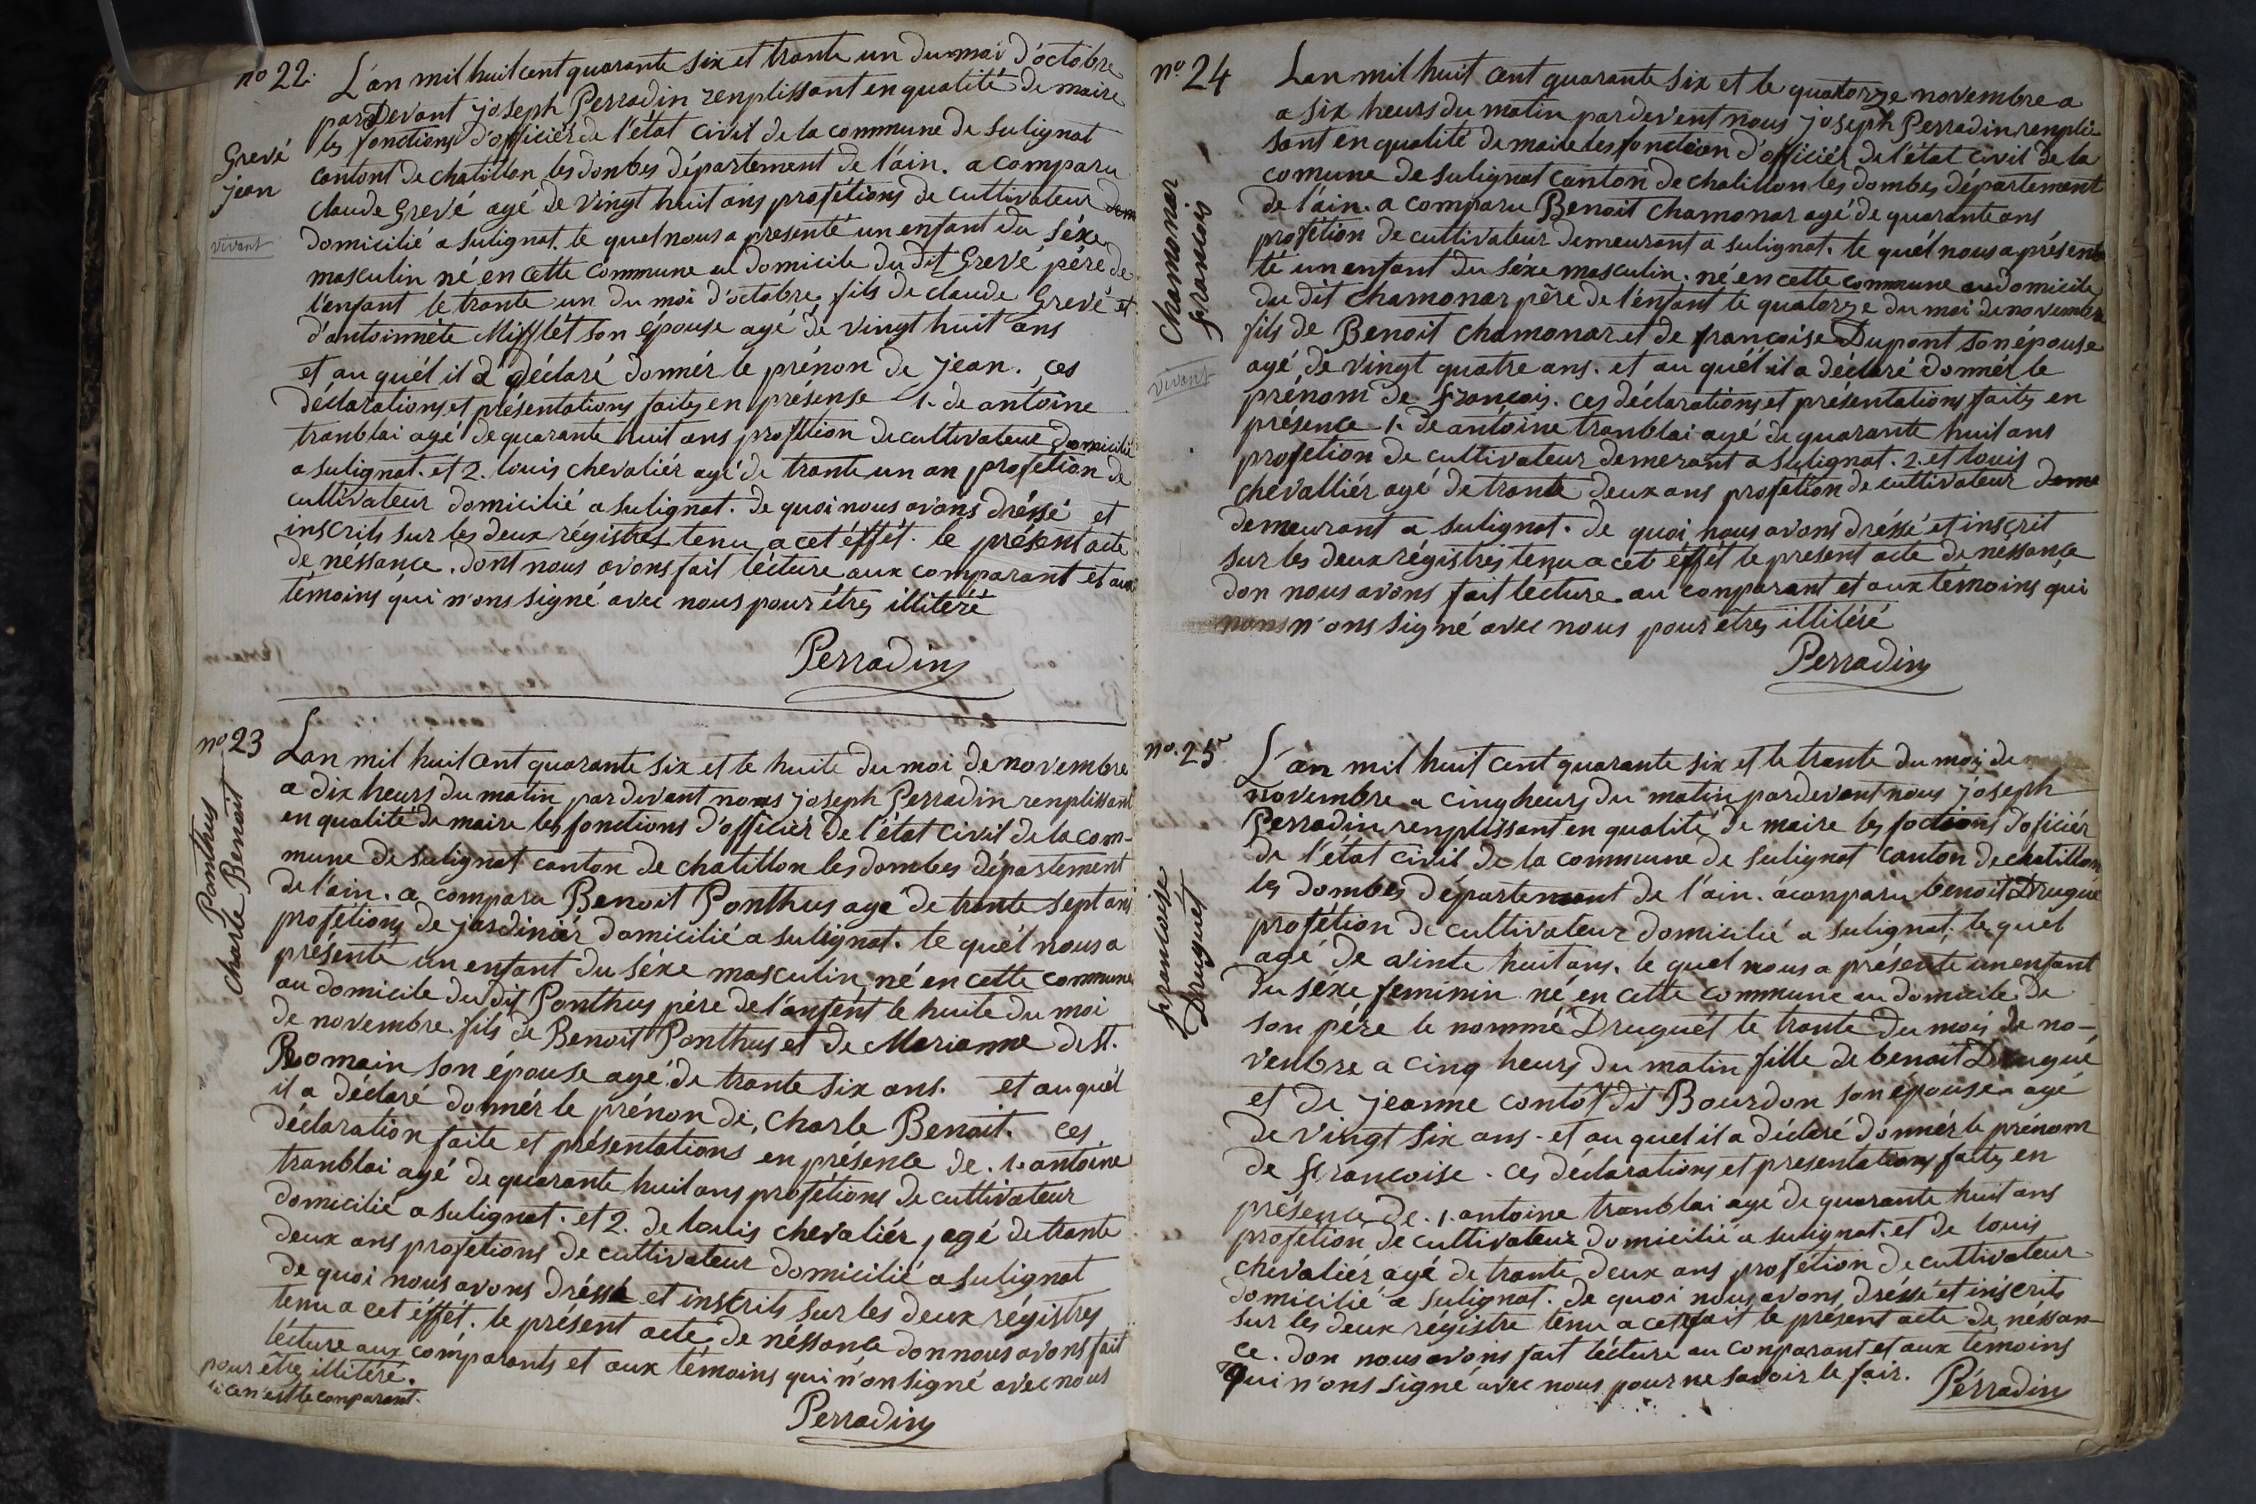 no 22.
Grevé
jean
vivant
L'an mil huit cent quarante six et trante un du moi d'octobre
pardevant joseph Perradin renplissant en qualité de maire
les fonctions d'officiér de l'état civil de la commune de sulignat
contont de chatillon les donbes département de l'ain. a comparu
claude Grevé agé de vingt huit ans profétions de cultivateur dom
domicilié a sulignat. le quel nous a presenté un enfant du séxe
masculin né en cette commune au domicile du dit Grevé pére de
l'enfant le trante un du moi d'octobre fils de claude Grevé et
d'antoinnéte Mifflét son épouse agé de vingt huit ans
et au quél il a déclaré donnér le prénon de jean. ces
déclarations et présentations faites en présense 1. de antoine
tranblai agé de quarante huit ans profétion de cultivateur domicilié
a sulignat. et 2. louis chevaliér agé de trante un an profetion de
cultivateur domicilié a sulignat. de quoi nous avons dréssé et
inscrits sur les deux régistres tenu a cet éffét. le présent acte
de néssance. dont nous avons fait lécture aux comparant et aux
témoins qui n'ons signé avec nous pour étres illitéré
Perradin
no 23
Ponthus
charle Benoit
Lan mil huit cent quarante six et le huite du moi de novembre
a dix heurs du matin par devant nous joseph Perradin renplissant
en qualité de maire les fonctions d'officiér de l'état civil de la com-
mune de sulignat canton de chatillon les dombes département
de l'ain. a comparu Benoit Ponthus agé de trante sept ans
profetions de jardiniér domicilié a sulignat. le quél nous a
présenté un enfant du séxe masculin né en cette commune
au domicile du dit Ponthus pére de l'anfént le huite du moi
de novembre. fils de Benoit Ponthus et de Marianne de st.
Romain son épouse agé de trante six ans. et au quél
il a déclaré donnér le prénon de, charle Benoit. ces
déclaration faite et présentations en présence de. 1. antoine
tranblai agé de quarante huit ans profétions de cultivateur
domicilié a sulignat. et 2. de louis chevaliér, agé de trante
deux ans profetions de cultivateur domicilié a sulignat
de quoi nous avons dréssé et inscrits sur les deux régistres
tenu a cet éffét. le présent acte de néssance don nous avons fait
lécture aux comparants et aux témoins qui n'on signé avec nous
pour étres illitéré.
si ce n'est le conparant.
Perradin
no. 24
chamonar
francois
vivant
Lan mil huit cent quarante six et le quatorze novembre a
a six heurs du matin pardevent nous joseph Perradin renpli-
sant en qualité de maire les fonction d'officiér de l'état civil de la
comune de sulignat canton de chatillon les dombes département
de l'ain. a comparu Benoit chamonar agé de quarante ans
profétion de cultivateur demeurant a sulignat. le quél nous a présen
té un enfant du séxe masculin. né en cette commune au domicile
du dit chamonar pére de l'énfant le quatorze du moi de novembre
fils de Benoit chamonar et de françoise Dupont son épouse
agé de vingt quatre ans. et au quél il a déclaré donnér le
prénom de francois. ces déclarations et présentations faites en
présence 1. de antoine tranblai agé de quarante huit ans
profetion de cultivateur demerant a sulignat. 2. et louis
chevalliér agé de trante deux ans profetion de cultivateur deme
demeurant a sulignat. de quoi nous avons dréssé et inscrit
sur les deux régistres tenu a cet éffét le present acte de nessance
don nous avons fait lecture au conparant et aux témoins qui
n'ons signé avec nous pour étres illitéré
Perradin
no. 25
francoise
Druguet
L'an mil huit cent quarante six et le trante du moi de
novembre a cinq heurs du matin pardevant nous joseph
Perradin renplissant en qualité de maire les foctions doficiér
de l'état civil de la commune de sulignat canton de chatillon
les dombes départemant de l'ain. a conparu benoit Drugué
profétion de cultivateur domicilié a sulignat. le quel
agé de vinte huit ans. le quel nous a présénté un enfant
du séxe feminin né en cette commune au domicile de
son pére le nommé Druguét le trante du moi de no-
venbre a cinq heurs du matin fille de benoit Drugué
et de jeanne contot dit Bourdon son épouse agé
de vingt six ans. et au quel il a décleré donnér le prénom
de francoise. ces déclarations et presentations faites en
présence de. 1. antoine tranblai agé de quarante huit ans
profétion de cultivateur domicilié a sulignat. et de louis
chevaliér agé de trante deux ans profétion de cultivateur
domicilié a sulignat. de quoi nous avons dréssé et inscrits
sur les deux régistre tenu a cet éfait le présent acte de néssan-
ce. don nous avons fait lécture au conparant et aux temoins
qui n'ons signé avec nous pour ne savoir le fair.
Perradin